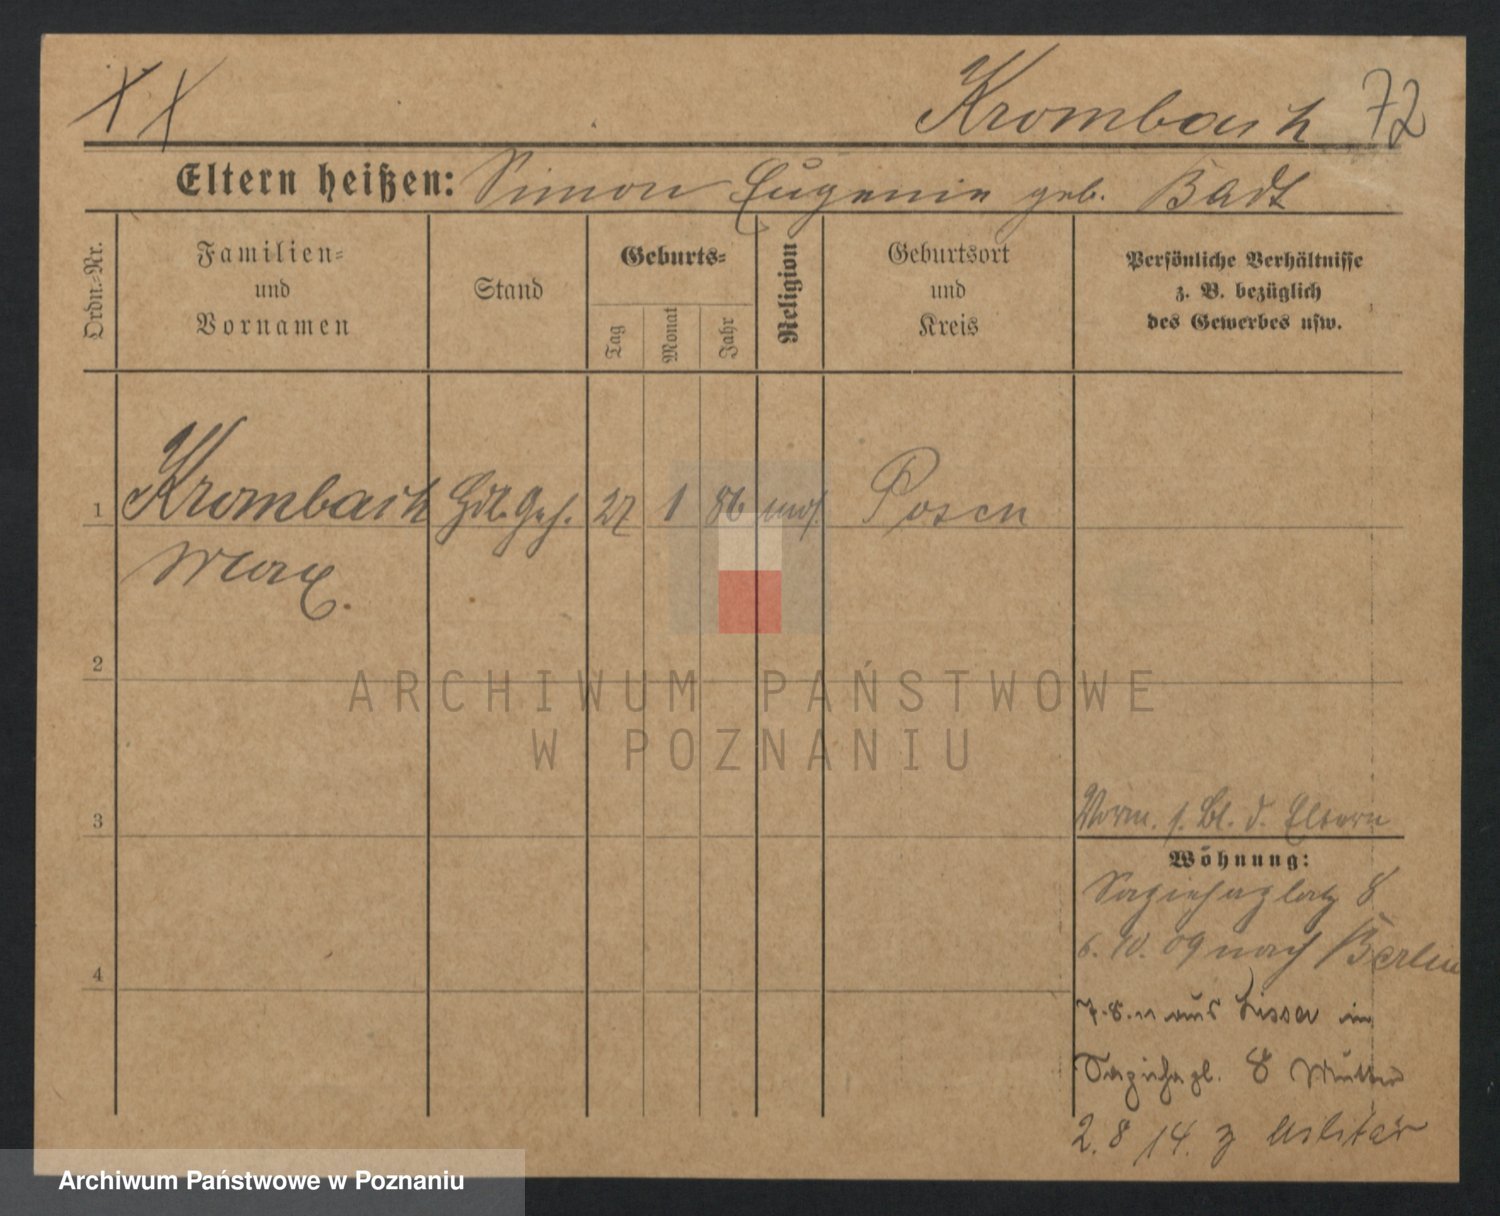 XX
Krombach 72
Eltern heißen: Simon Eugenie geb. Badt
Ordn.-Nr.
Familien=
und
Vornamen
Stand
Geburts=
Tag
Monat
Jahr
Religion
Geburtsort
und
Kreis
Persönliche Verhältnisse
z. B. bezüglich
des Gewerbes usw.
1 Krombach Hdl. Geh. 27 1 86 mos. Posen
Max.
2
3
4
Vorm. s. Bl. d. Eltern
Wohnung:
Sapiehaplatz 8
6. 10. 09 nach Berlin
7.8.11 aus Lissa in
Sapiehapl. 8 Mutter
2. 8 14. z Militär
ARCHIWUM PAŃSTWOWE
W POZNANIU
Archiwum Państwowe w Poznaniu